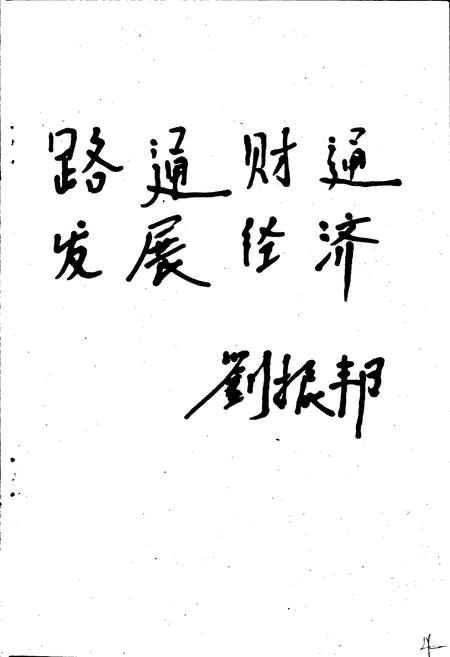 路通财通
发展经济
劉振邦